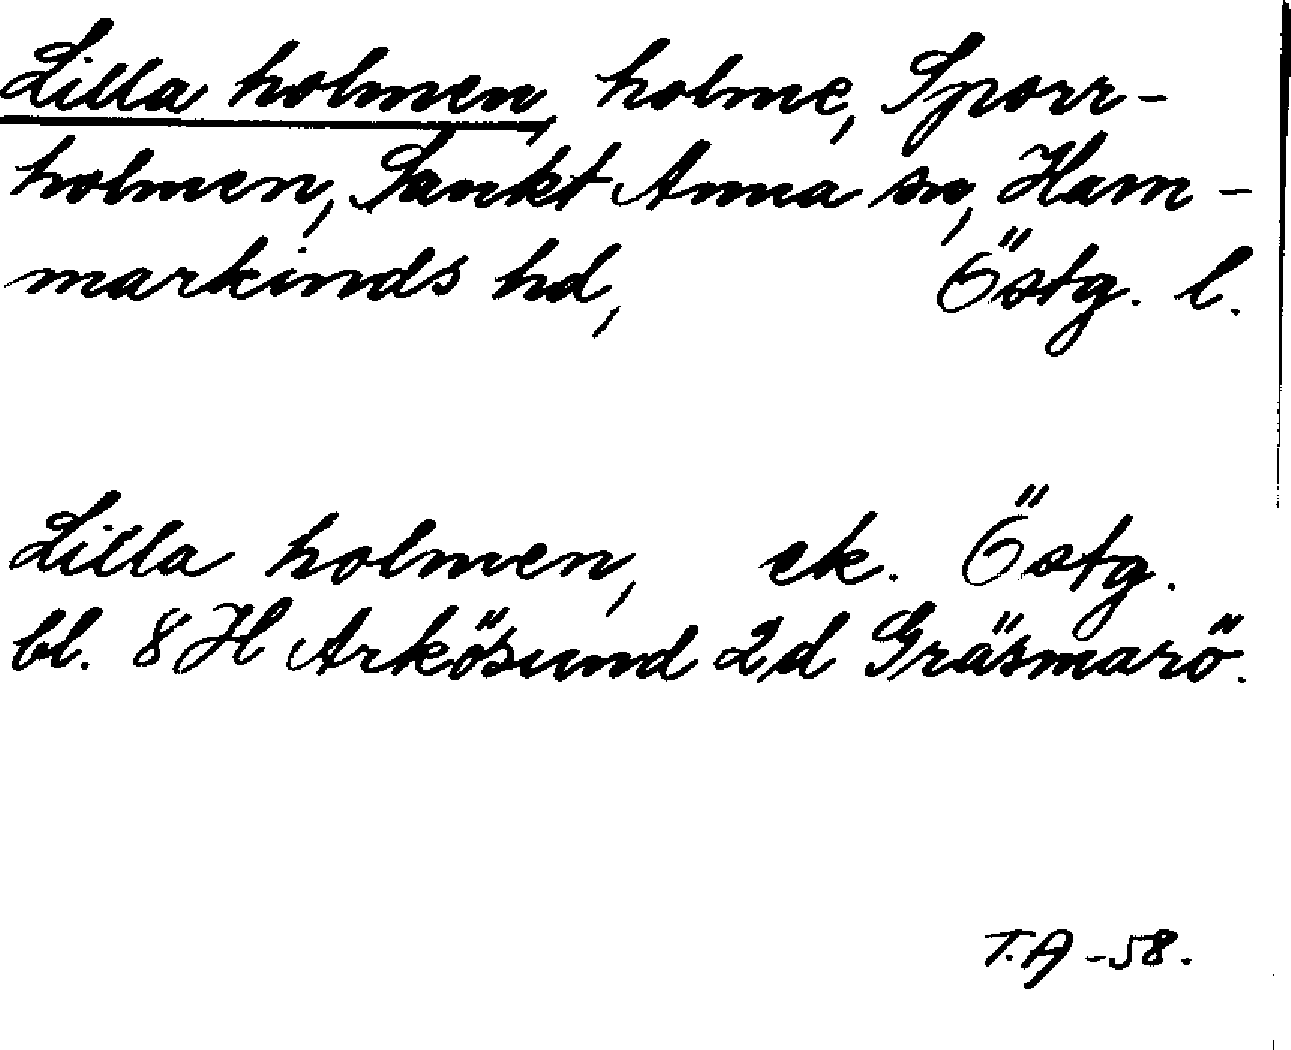 Lilla holmen, holme, Sporr-
holmen, Sankt Anna sn, Ham-
markinds hd, Östg. l.
Lilla holmen, ek. Östg.
bl. 8 H Arkösund 2d Gräsmarö.
T.A -58.